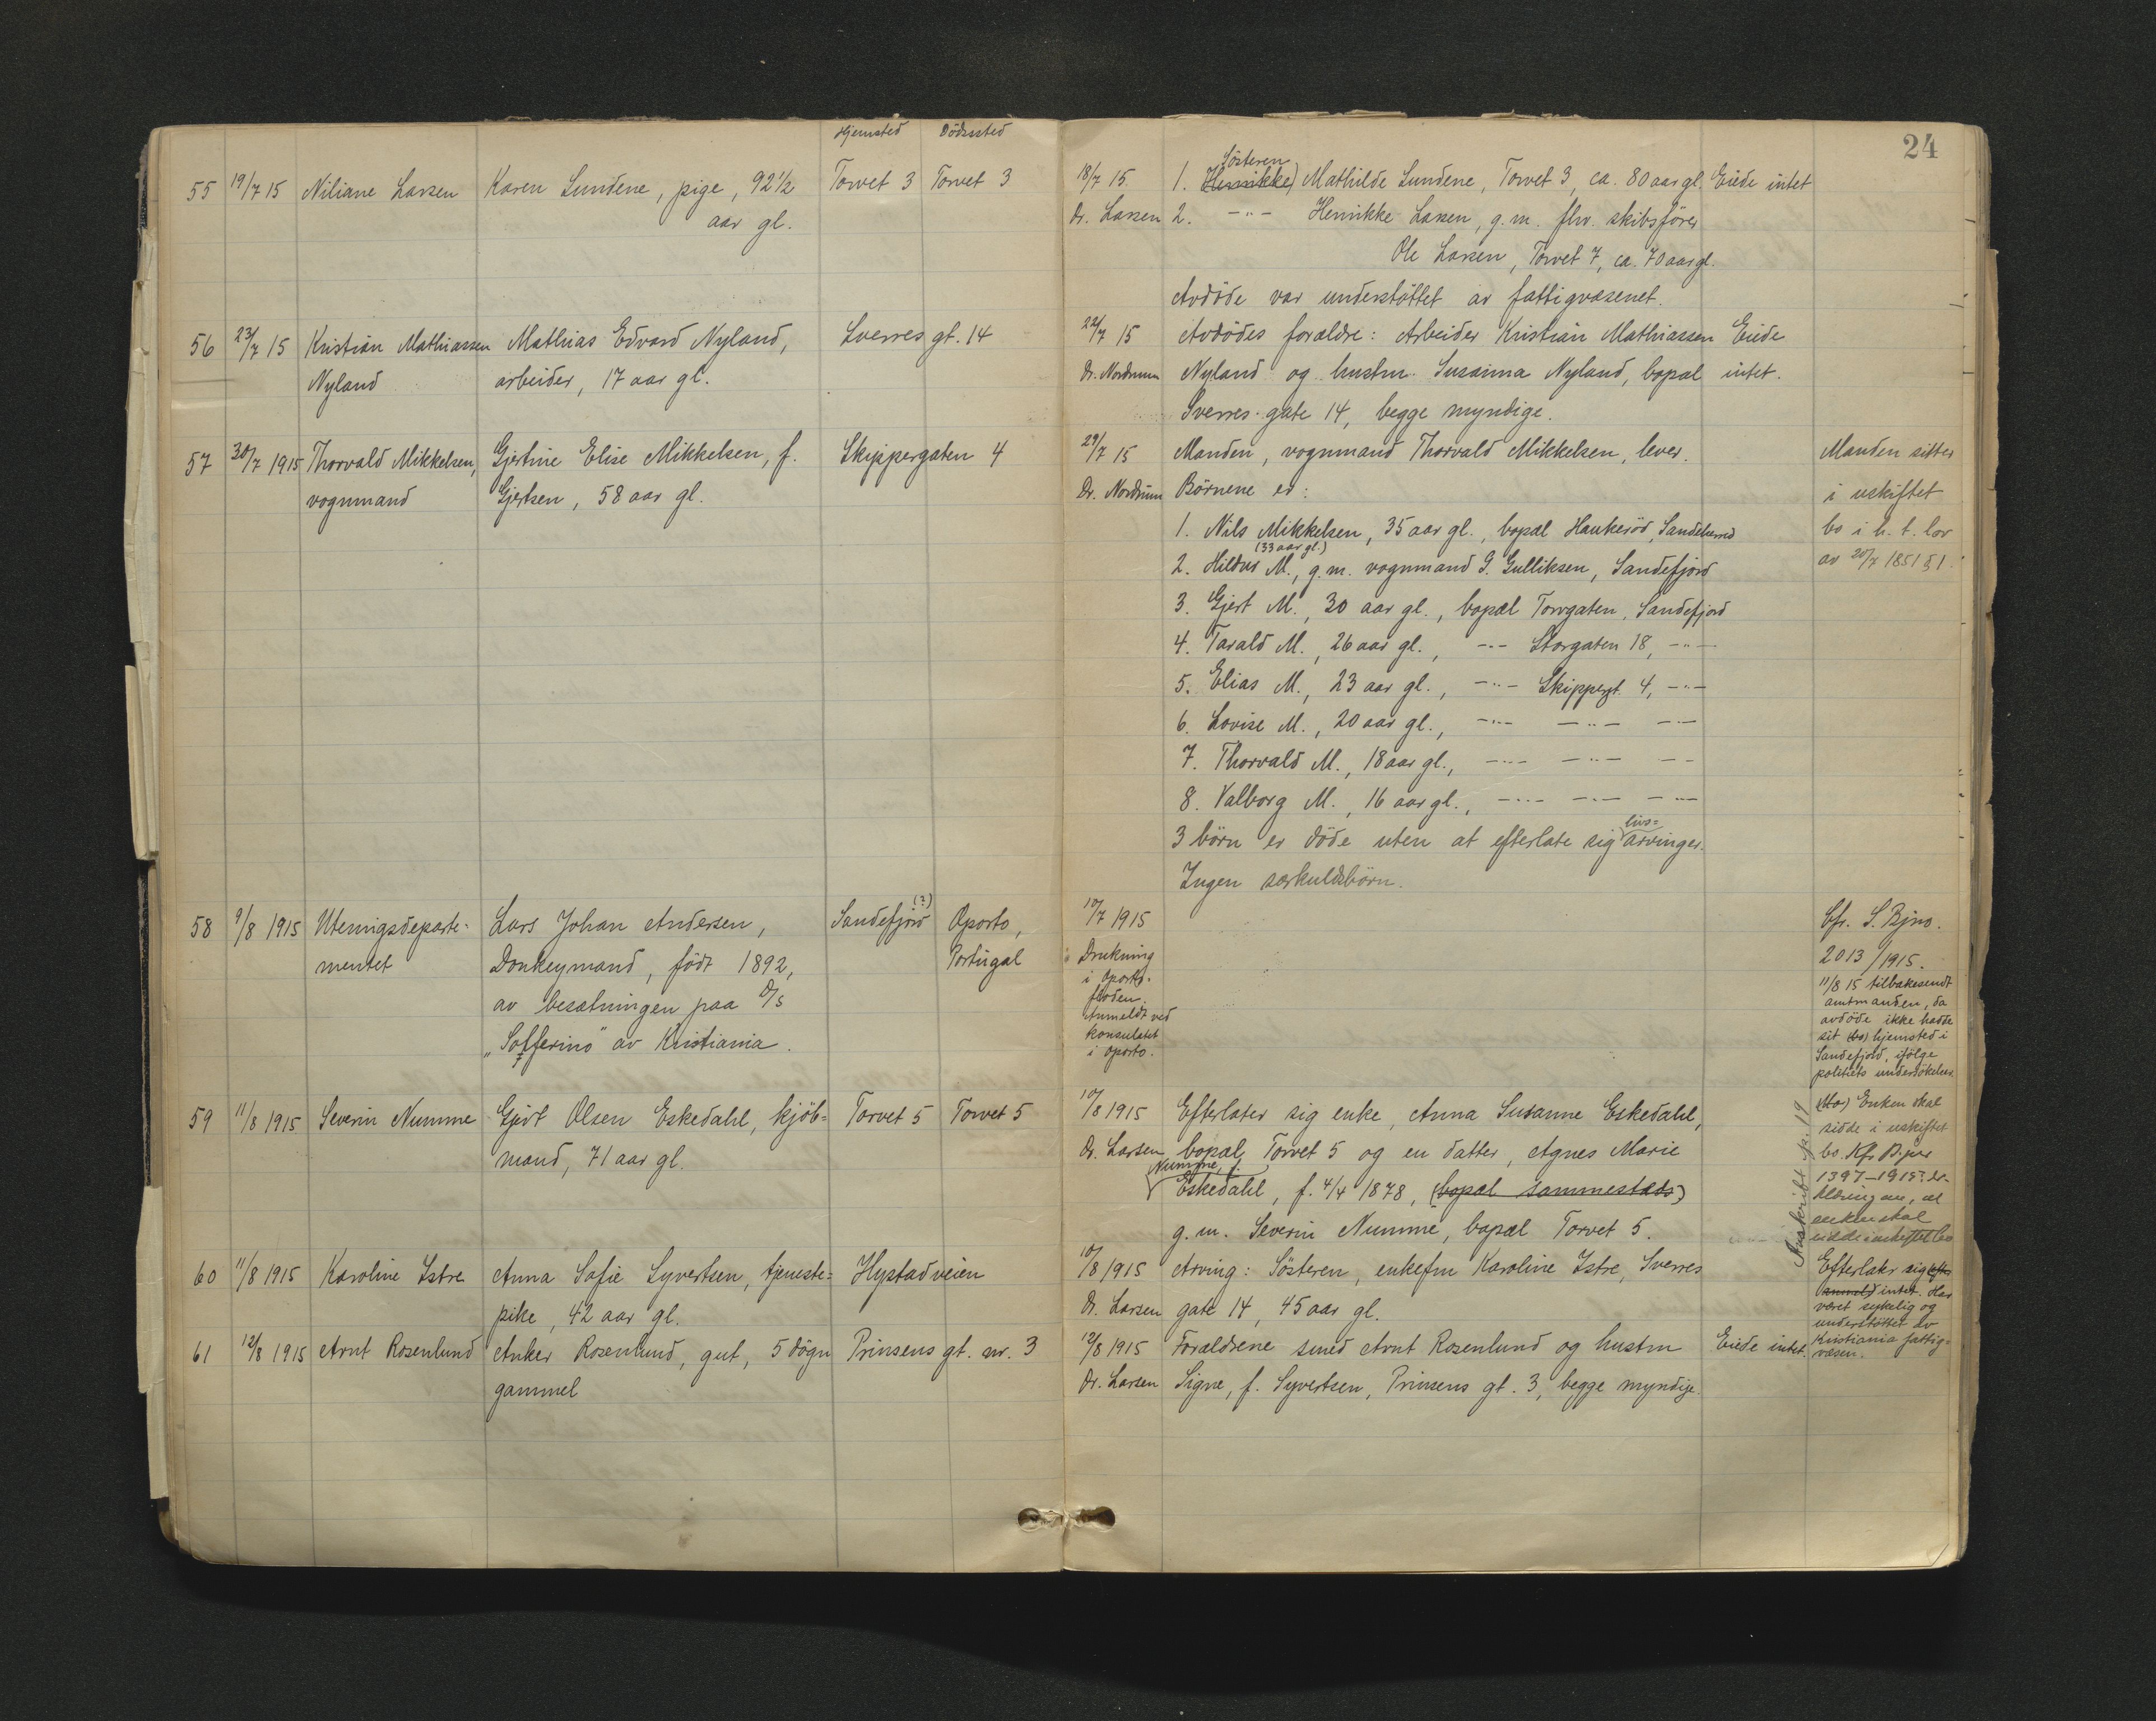 Hjemsted Dödssted
24
55 19/7 15 Niliane Larsen Karen Lundene, pige, 92 1/2 Torvet 3 Torvet 3
aar gl.
18/7 15. 1. Søsteren (Henrikke) Mathilde Lundene, Torvet 3, ca. 80 aar gl. Eiede intet
Dr. Larsen 2. -"- Henrikke Larsen, g.m. fhv. skibsförer
Ole Larsen, Torvet 7, ca. 70 aar gl.
Avdöde var understöttet av fattigvæsenet.
56 23/7 15 Kristian Mathiassen Mathias Edvard Nyland, Sverres gt. 14
Nyland arbeider, 17 aar gl.
22/7 15 Avdödes forældre: Arbeider Kristian Mathiassen Eiede
Dr. Nordrum Nyland og hustru Susanna Nyland, bopæl intet.
Sverres gate 14, begge myndige.
57 30/7 1915 Thorvald Mikkelsen, Gjertine Elise Mikkelsen, f. Skippergaten 4
vognmand Gjertsen, 58 aar gl.
29/7 15 Manden, vognmand Thorvald Mikkelsen, lever. Manden sitter
Dr. Nordrum Börnene er: i uskiftet
1. Nils Mikkelsen, 35 aar gl., bopæl Haukeröd, Sandeherred bo i h. t. lov
(33 aar gl.)
2. Hildur M., g.m. vognmand G. Gulliksen, Sandefjord av 20/7 1851 § 1.
3. Gjert M., 30 aar gl., bopæl Torvgaten, Sandefjord
4. Tarald M., 26 aar gl., -"- Storgaten 18, -"-
5. Elias M., 23 aar gl., -"- Skippergt. 4, -"-
6. Lovise M., 20 aar gl., -"- -"- -"-
7. Thorvald M., 18 aar gl., -"- -"- -"-
8. Valborg M., 16 aar gl., -"- -"- -"-
3 börn er döde uten at efterlate sig livs= arvinger.
Ingen særkuldsbörn.
58 9/8 1915 Utenrigsdeparte- Lars Johan Andersen, Sandefjord (?) Oporto,
mentet Donkeymand, födt 1892, Portugal
av besætningen paa D/S
"Solferino" av Kristiania.
10/7 1915
Drukning
i Oporto-
floden.
Anmeldt ved
konsulatet
i Oporto.
Cfr. S. Bjno.
2013/1915.
11/8 15 tilbakesendt
amtmanden, da
avdöde ikke hadde
sit (bo) hjemsted i
Sandefjord, ifölge
politiets undersökelser.
59 11/8 1915 Severin Numme Gjert Olsen Eskedahl, kjöb= Torvet 5 Torvet 5
mand, 71 aar gl.
10/8 1915 Efterlater sig enke, Anna Susanne Eskedahl,
Dr. Larsen bopæl Torvet 5 og en datter, Agnes Marie
Numme, f.
Eskedahl, f. 4/4 1878, (bopæl sammesteds)
g.m. Severin Numme, bopæl Torvet 5.
Enken skal
sidde i uskiftet
bo. Kfr. B.jnr
1397-1915: er-
klæring om, at
enken skal
sidde i uskiftet bo
60 11/8 1915 Karoline Istre Anna Sofie Syvertsen, tjeneste= Hystadveien
pike, 42 aar gl.
10/8 1915 Arving: Søsteren, enkefru Karoline Istre, Sverres
Dr. Larsen gate 14, 45 aar gl.
Efterlater sig
intet. Har
været sykelig og
understöttet av
Kristiania fattig=
væsen.
61 12/8 1915 Arnt Rosenlund Anker Rosenlund, gut, 5 dögn Prinsens gt. nr. 3
gammel
12/8 1915 Forældrene smed Arnt Rosenlund og hustru Eiede intet.
Dr. Larsen Signe, f. Syvertsen, Prinsens gt. 3, begge myndige.